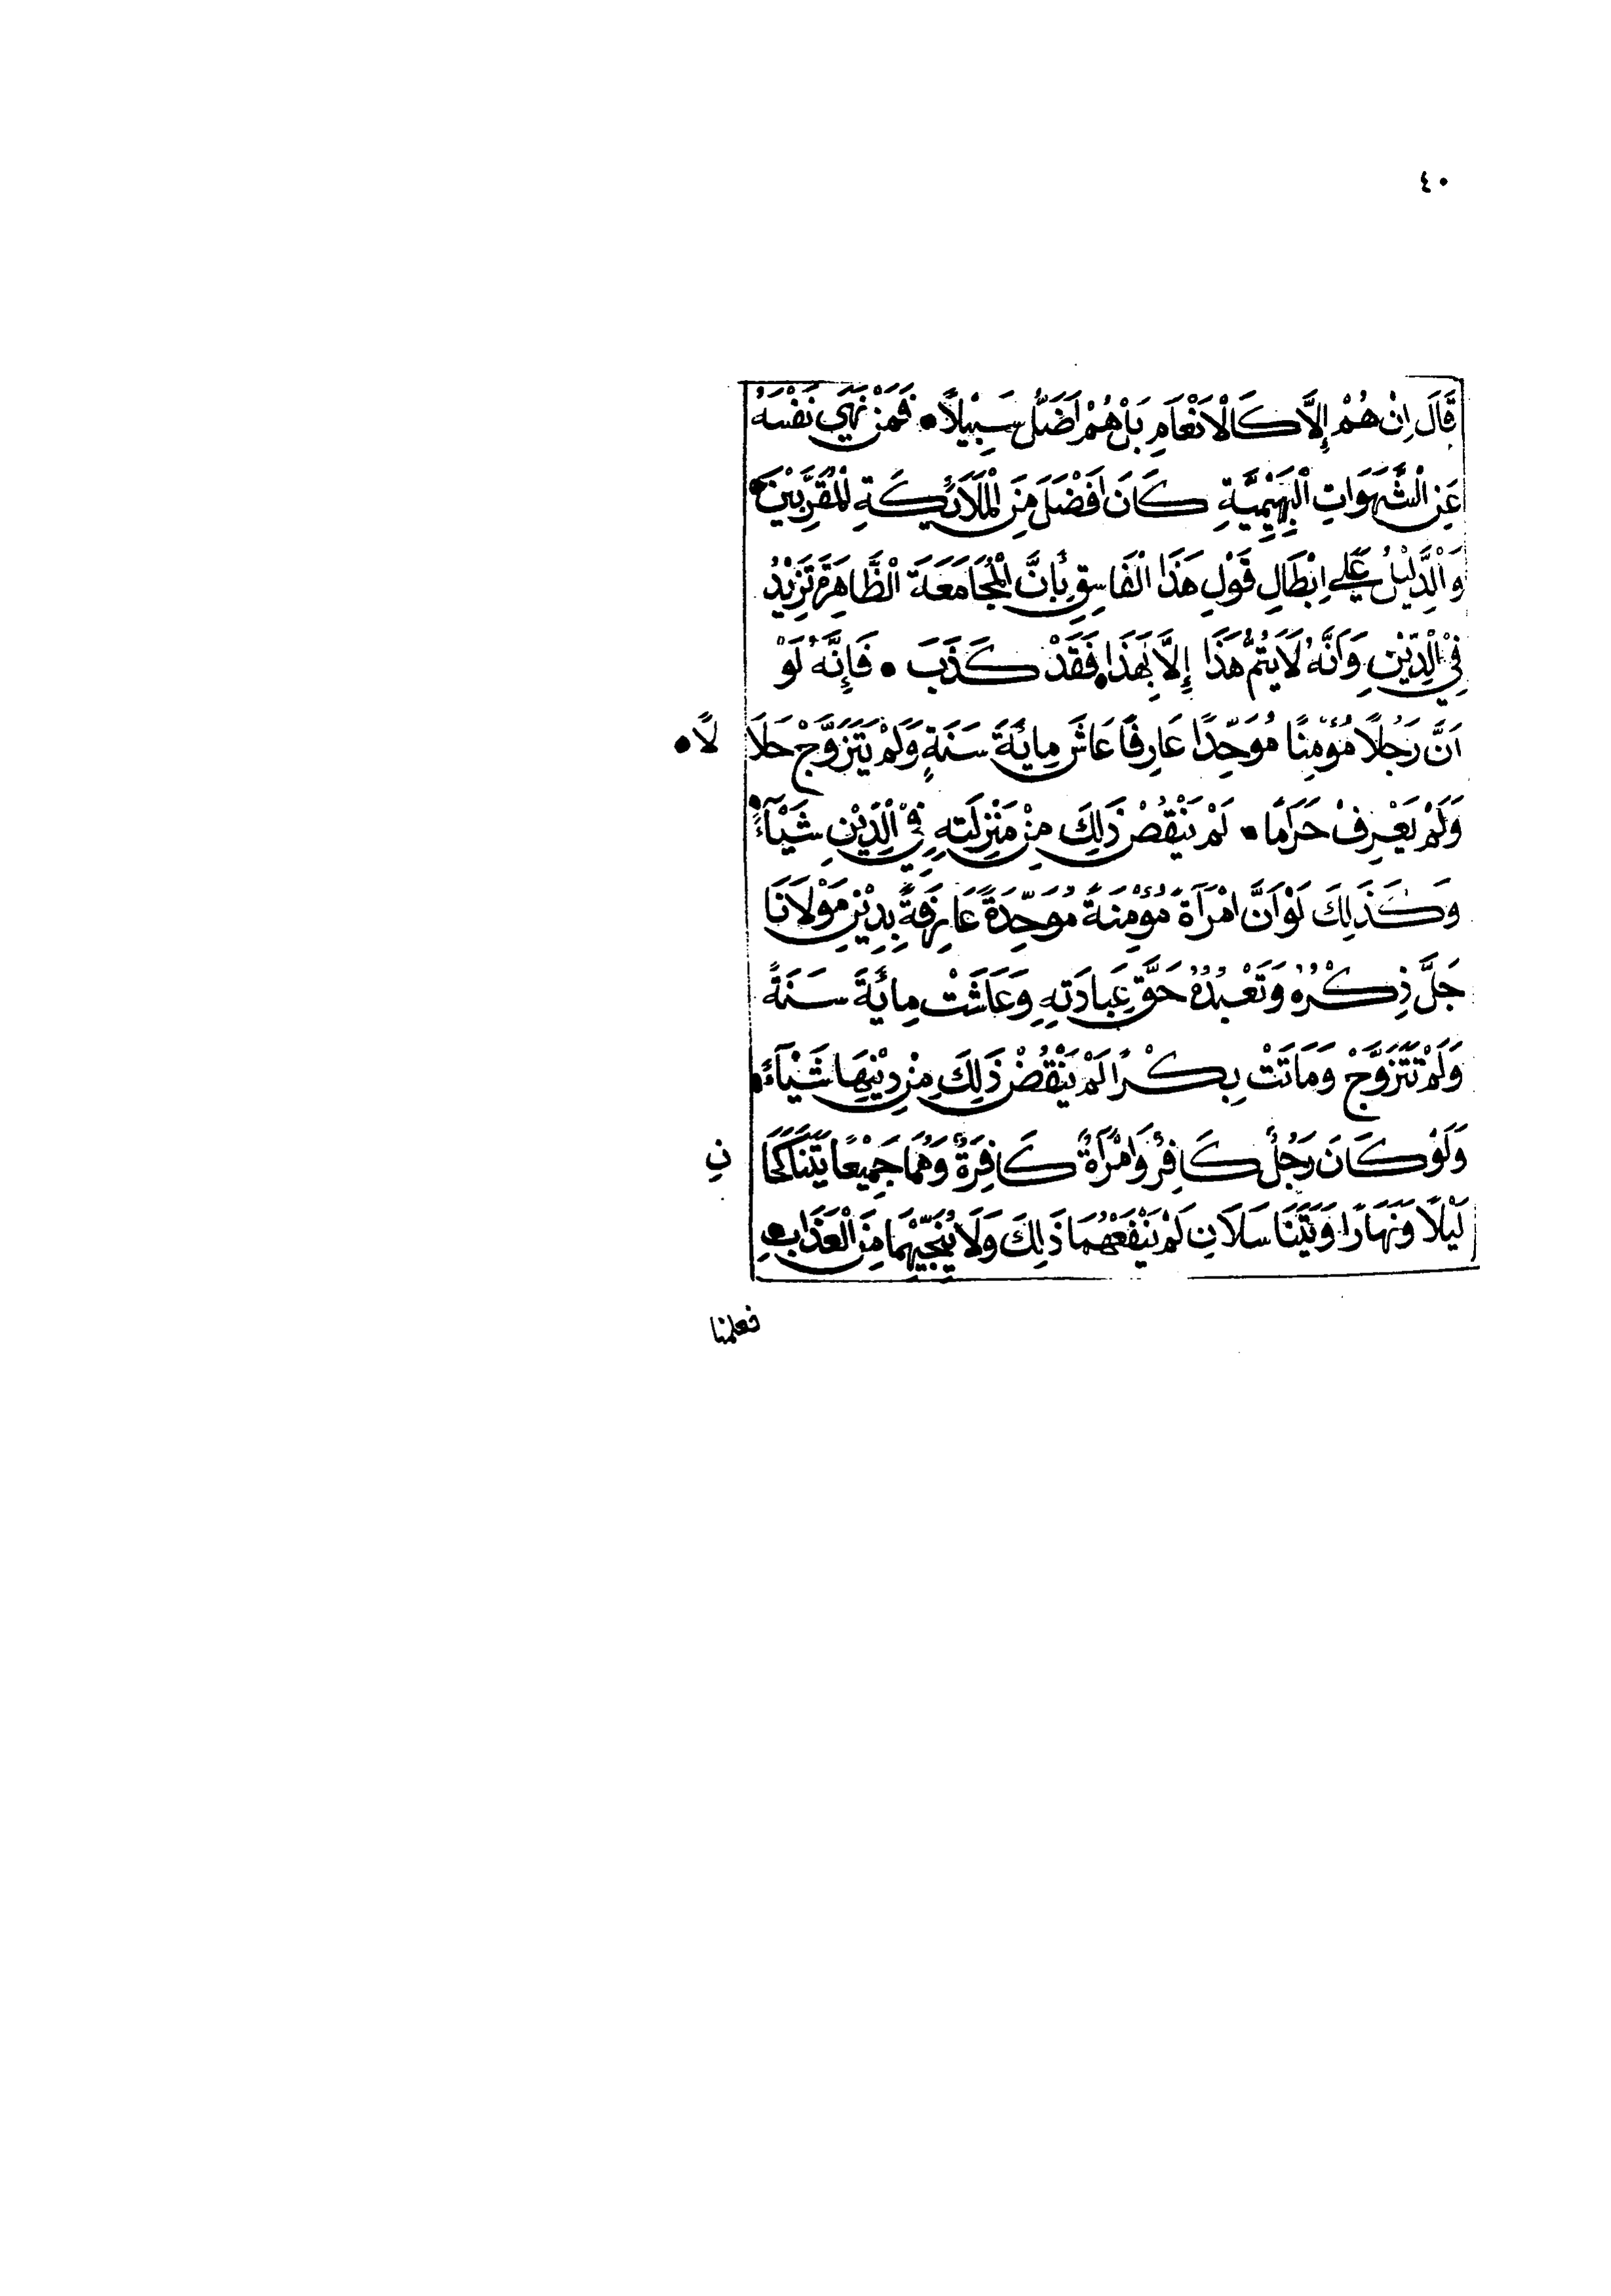 ٤٠
قَالَ اِنْ هُمْ إِلَّا كَالْاَنْعَامِ بَلْ هُمْ اَضَلُّ سَبِيْلًا • فَمَنْ نَهَى نَفْسَهُ
عَنِ الْشَّهَوَاتِ الْبَهِيْمِيَّةِ كَانَ اَفْضَلَ مِنَ الْمَلَائِكَةِ الْمُقَرَّبِيْنَ •
وَالْدَّلِيْلُ عَلَى اِبْطَالِ قَوْلِ هَذَا الْفَاسِقِ بِأَنَّ الْمُجَامَعَةَ الْظَّاهِرَةَ تَزِيْدُ
فِيْ الْدِّيْنِ وَاَنَّهُ لَا يَتِمُّ هَذَا إِلَّا بِهَذَا فَقَدْ كَذَبَ • فَإِنَّهُ لَوْ
اَنَّ رَجُلًا مُؤْمِنًا مُوَحِّدًا عَارِفًا عَاشَ مِائَةَ سَنَةٍ وَلَمْ يَتَزَوَّجْ حَلَا لًا •
وَلَمْ يَعْرِفْ حَرَامًا • لَمْ يَنْقُصْ ذَلِكَ مِنْ مَنْزِلَتِهِ فِيْ الْدِّيْنِ شَيْآءً •
وَكَذَلِكَ لَوْ اَنَّ امْرَآةً مُؤْمِنَةً مُوَحِّدَةً عَارِفَةً بِدِيْنِ مَوْلَانَا
جَلَّ ذِكْرُهُ وَتَعْبُدُهُ حَقَّ عِبَادَتِهِ وَعَاشَتْ مِائَةَ سَنَةً
وَلَمْ تَتَزَوَّجْ وَمَاتَتْ بِكْرًا لَمْ يَنْقُصْ ذَلِكَ مِنْ دِيْنِهَا شَيْآءً •
وَلَوْ كَانَ رَجُلٌ كَافِرٌ وَامْرَآةٌ كَافِرَةٌ وَهُمَا جَمِيْعًا يَتَنَاكَحَا نِ
لَيْلًا وَنَهَارًا وَيَتَنَاسَلَانِ لَمْ يَنْفَعْهُمَا ذَلِكَ وَلَا يُنَجِّيْهُمَا مِنَ الْعَذَابِ •
فعلمنا